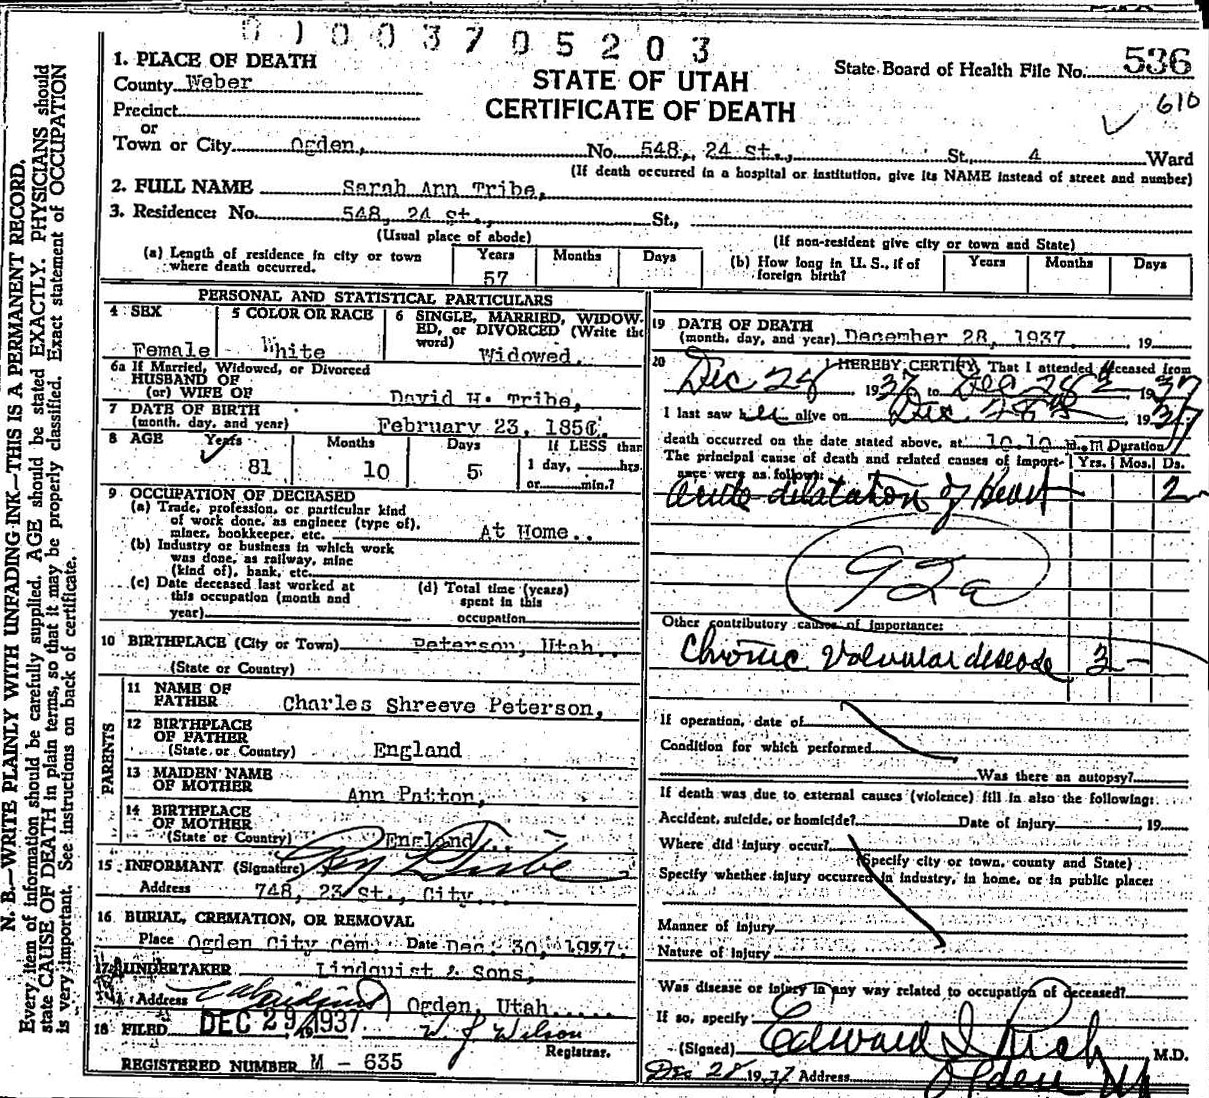 01003705203
1. PLACE OF DEATH
County Weber
STATE OF UTAH
CERTIFICATE OF DEATH
State Board of Health File No. 536
610
Precinct
or
Town or City Ogden, No. 548, 24 St., St., 4 Ward
(If death occurred in a hospital or institution, give its NAME instead of street and number)
2. FULL NAME Sarah Ann Tribe,
3. Residence: No. 548, 24 st., St.,
(Usual place of abode) (If non-resident give city or town and State)
(a) Length of residence in city or town where death occurred. Years 57 Months Days
(b) How long in U. S., if of foreign birth? Years Months Days
PERSONAL AND STATISTICAL PARTICULARS
4 SEX Female
5 COLOR OR RACE White
6 SINGLE, MARRIED, WIDOWED, or DIVORCED (Write the word) Widowed.
6a If Married, Widowed, or Divorced
HUSBAND OF
(or) WIFE OF David H. Tribe,
7 DATE OF BIRTH
(month, day, and year) February 23, 1856.
8 AGE Years 81 Months 10 Days 5
If LESS than
1 day, hrs.
or min.?
9 OCCUPATION OF DECEASED
(a) Trade, profession, or particular kind
of work done, as engineer (type of),
miner, bookkeeper, etc. At Home..
(b) Industry or business in which work
was done, as railway, mine
(kind of), bank, etc.
(c) Date deceased last worked at
this occupation (month and
year)
(d) Total time (years)
spent in this
occupation
10 BIRTHPLACE (City or Town) Peterson, Utah..
(State or Country)
PARENTS
11 NAME OF
FATHER Charles Shreeve Peterson,
12 BIRTHPLACE
OF FATHER
(State or Country) England
13 MAIDEN NAME
OF MOTHER Ann Patton,
14 BIRTHPLACE
OF MOTHER
(State or Country) England..
15 INFORMANT (Signature)
Address 748, 23 St., City...
16 BURIAL, CREMATION, OR REMOVAL
Place Ogden City Cem. Date Dec. 30, 1937.
17 UNDERTAKER Lindquist & Sons,
Address Ogden, Utah.....
18 FILED DEC 29 1937 W. J. Wilson
Registrar.
REGISTERED NUMBER M - 635
19 DATE OF DEATH
(month, day, and year) December 28, 1937. , 19
20 I HEREBY CERTIFY, That I attended deceased from
Dec 28 1937 to Dec 28 1937
I last saw her alive on Dec 28 1937
death occurred on the date stated above, at 10.10 m. Duration
The principal cause of death and related causes of importance were as follows: Yrs. Mos. Ds.
Acute dilatation of Heart 2
92a
Other contributory causes of importance:
Chronic Valvular disease 3 -
If operation, date of
Condition for which performed
Was there an autopsy?
If death was due to external causes (violence) fill in also the following:
Accident, suicide, or homicide? Date of injury , 19
Where did injury occur?
(Specify city or town, county and State)
Specify whether injury occurred in industry, in home, or in public place:
Manner of injury
Nature of injury
Was disease or injury in any way related to occupation of deceased?
If so, specify
(Signed) Edward I Rich M.D.
Dec 28 1937 Address Ogden
N. B.—WRITE PLAINLY WITH UNFADING INK—THIS IS A PERMANENT RECORD.
Every item of information should be carefully supplied. AGE should be stated EXACTLY. PHYSICIANS should
state CAUSE OF DEATH in plain terms, so that it may be properly classified. Exact statement of OCCUPATION
is very important. See instructions on back of certificate.